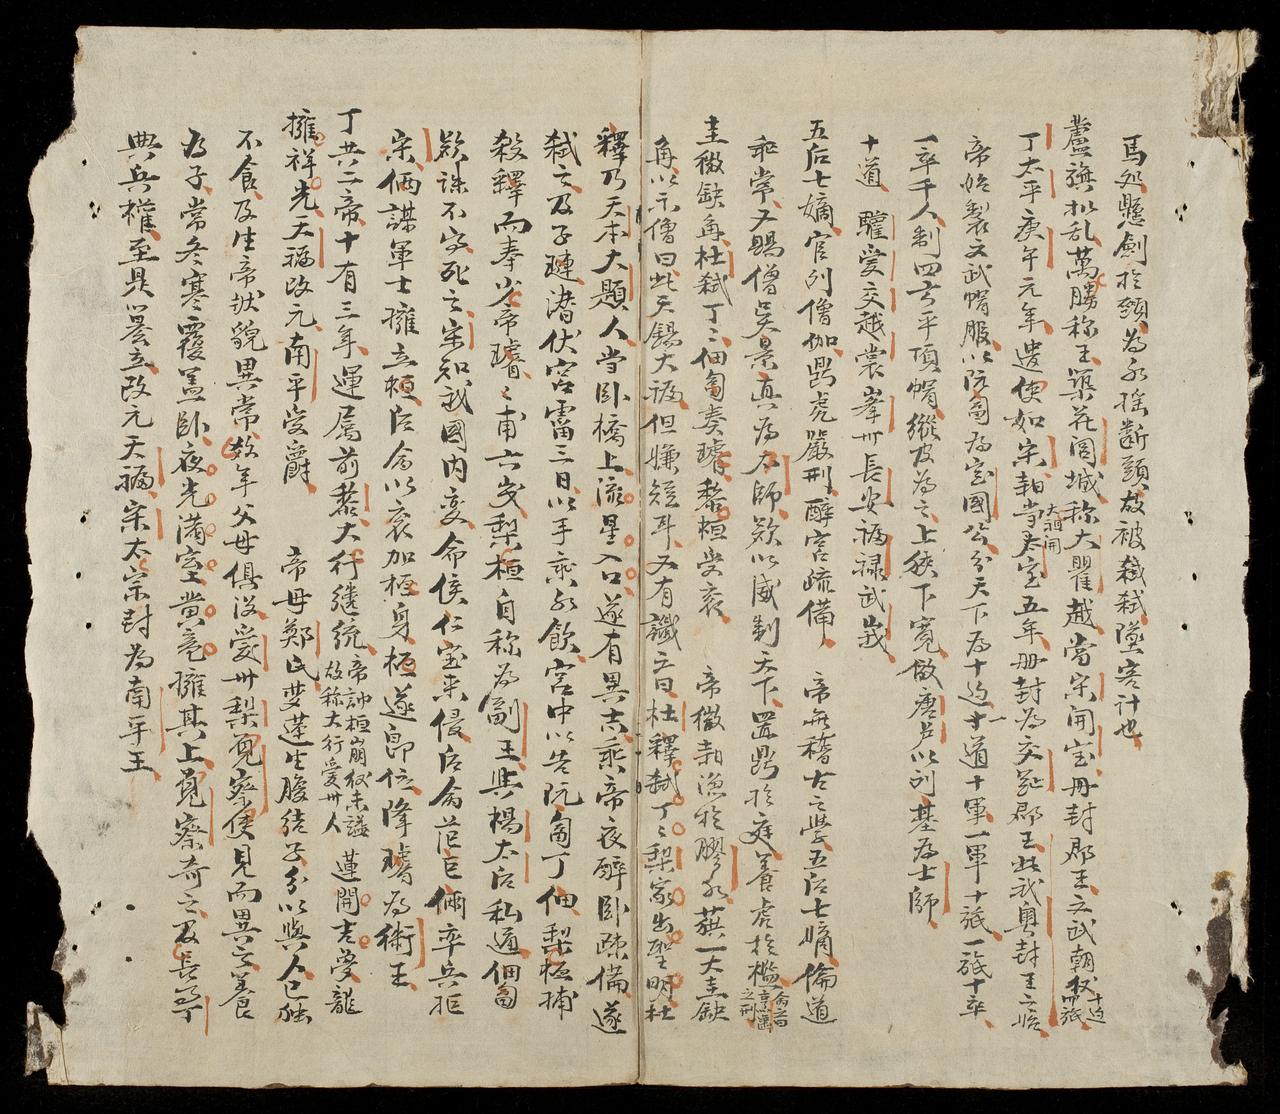 馬処懸劍於頸為永揺断頭故被弒弒墜害計也
蘆旗扒乱萬勝称王築花閭城称大瞿越當宋開宝冊封郡王文武朝儀十道兩班
丁太平庚午元年遣使如宋朝當太宝五年冊封為交趾郡王此我奥封王之始
大祖開
帝始製文武帽服以阮匐為定國公分天下為十道十道十軍一軍十旅一旅十卒
一卒千人制四方平頂帽縫皮為之上狹下寬倣唐虞以列基為士師
十道 驩愛交越裳峯卅長安福禄武峩
五后七嫡官列僧伽鼎虎嚴刑醉宮疏備 帝無稽古之學五后七嫡倫道
乖常又賜僧吳景真為太師欲以威制天下置鼎於庭養虎於檻
圭徵缺角杜弒丁丁佃匐奏璿黎桓受袞 帝微朝漁於膠水蘋一大圭缺
角以示僧曰此天錫大福但慊短耳又有讖云曰杜釋弒丁丁梨家出聖明杜
釋乃天本大題人嘗卧橋上流星入口遂有異志乘帝夜醉卧疎備遂
弒之及子璉潛伏宮霤三日以手乘水飲宮中以告阮匐丁佃梨桓捕
殺釋而奉少帝璿璿甫六歲梨桓自称為副王與楊太后私通佃匐
欲誅不克死之宋知我國内変命侯仁宝来侵后命范巨倆率兵拒
宋倆謀軍士擁立桓后命以袞加桓身桓遂即位降璿為衛王
丁共二帝十有三年運屬前黎大行継統帝訥桓崩後未謚故称大行愛卅人 蓮開吉夢龍
擁祥光天福改元南平受爵 帝母鄭氏夢蓮生腹結子分以與人己独
不食及生帝状貌異常数年父母俱没愛卅梨覓察使見而異之養
為子常冬寒覆盖卧夜光満室黄竜擁其上覓察奇之及長丁
典兵權至是曇立改元天福宋太宗封為南平王